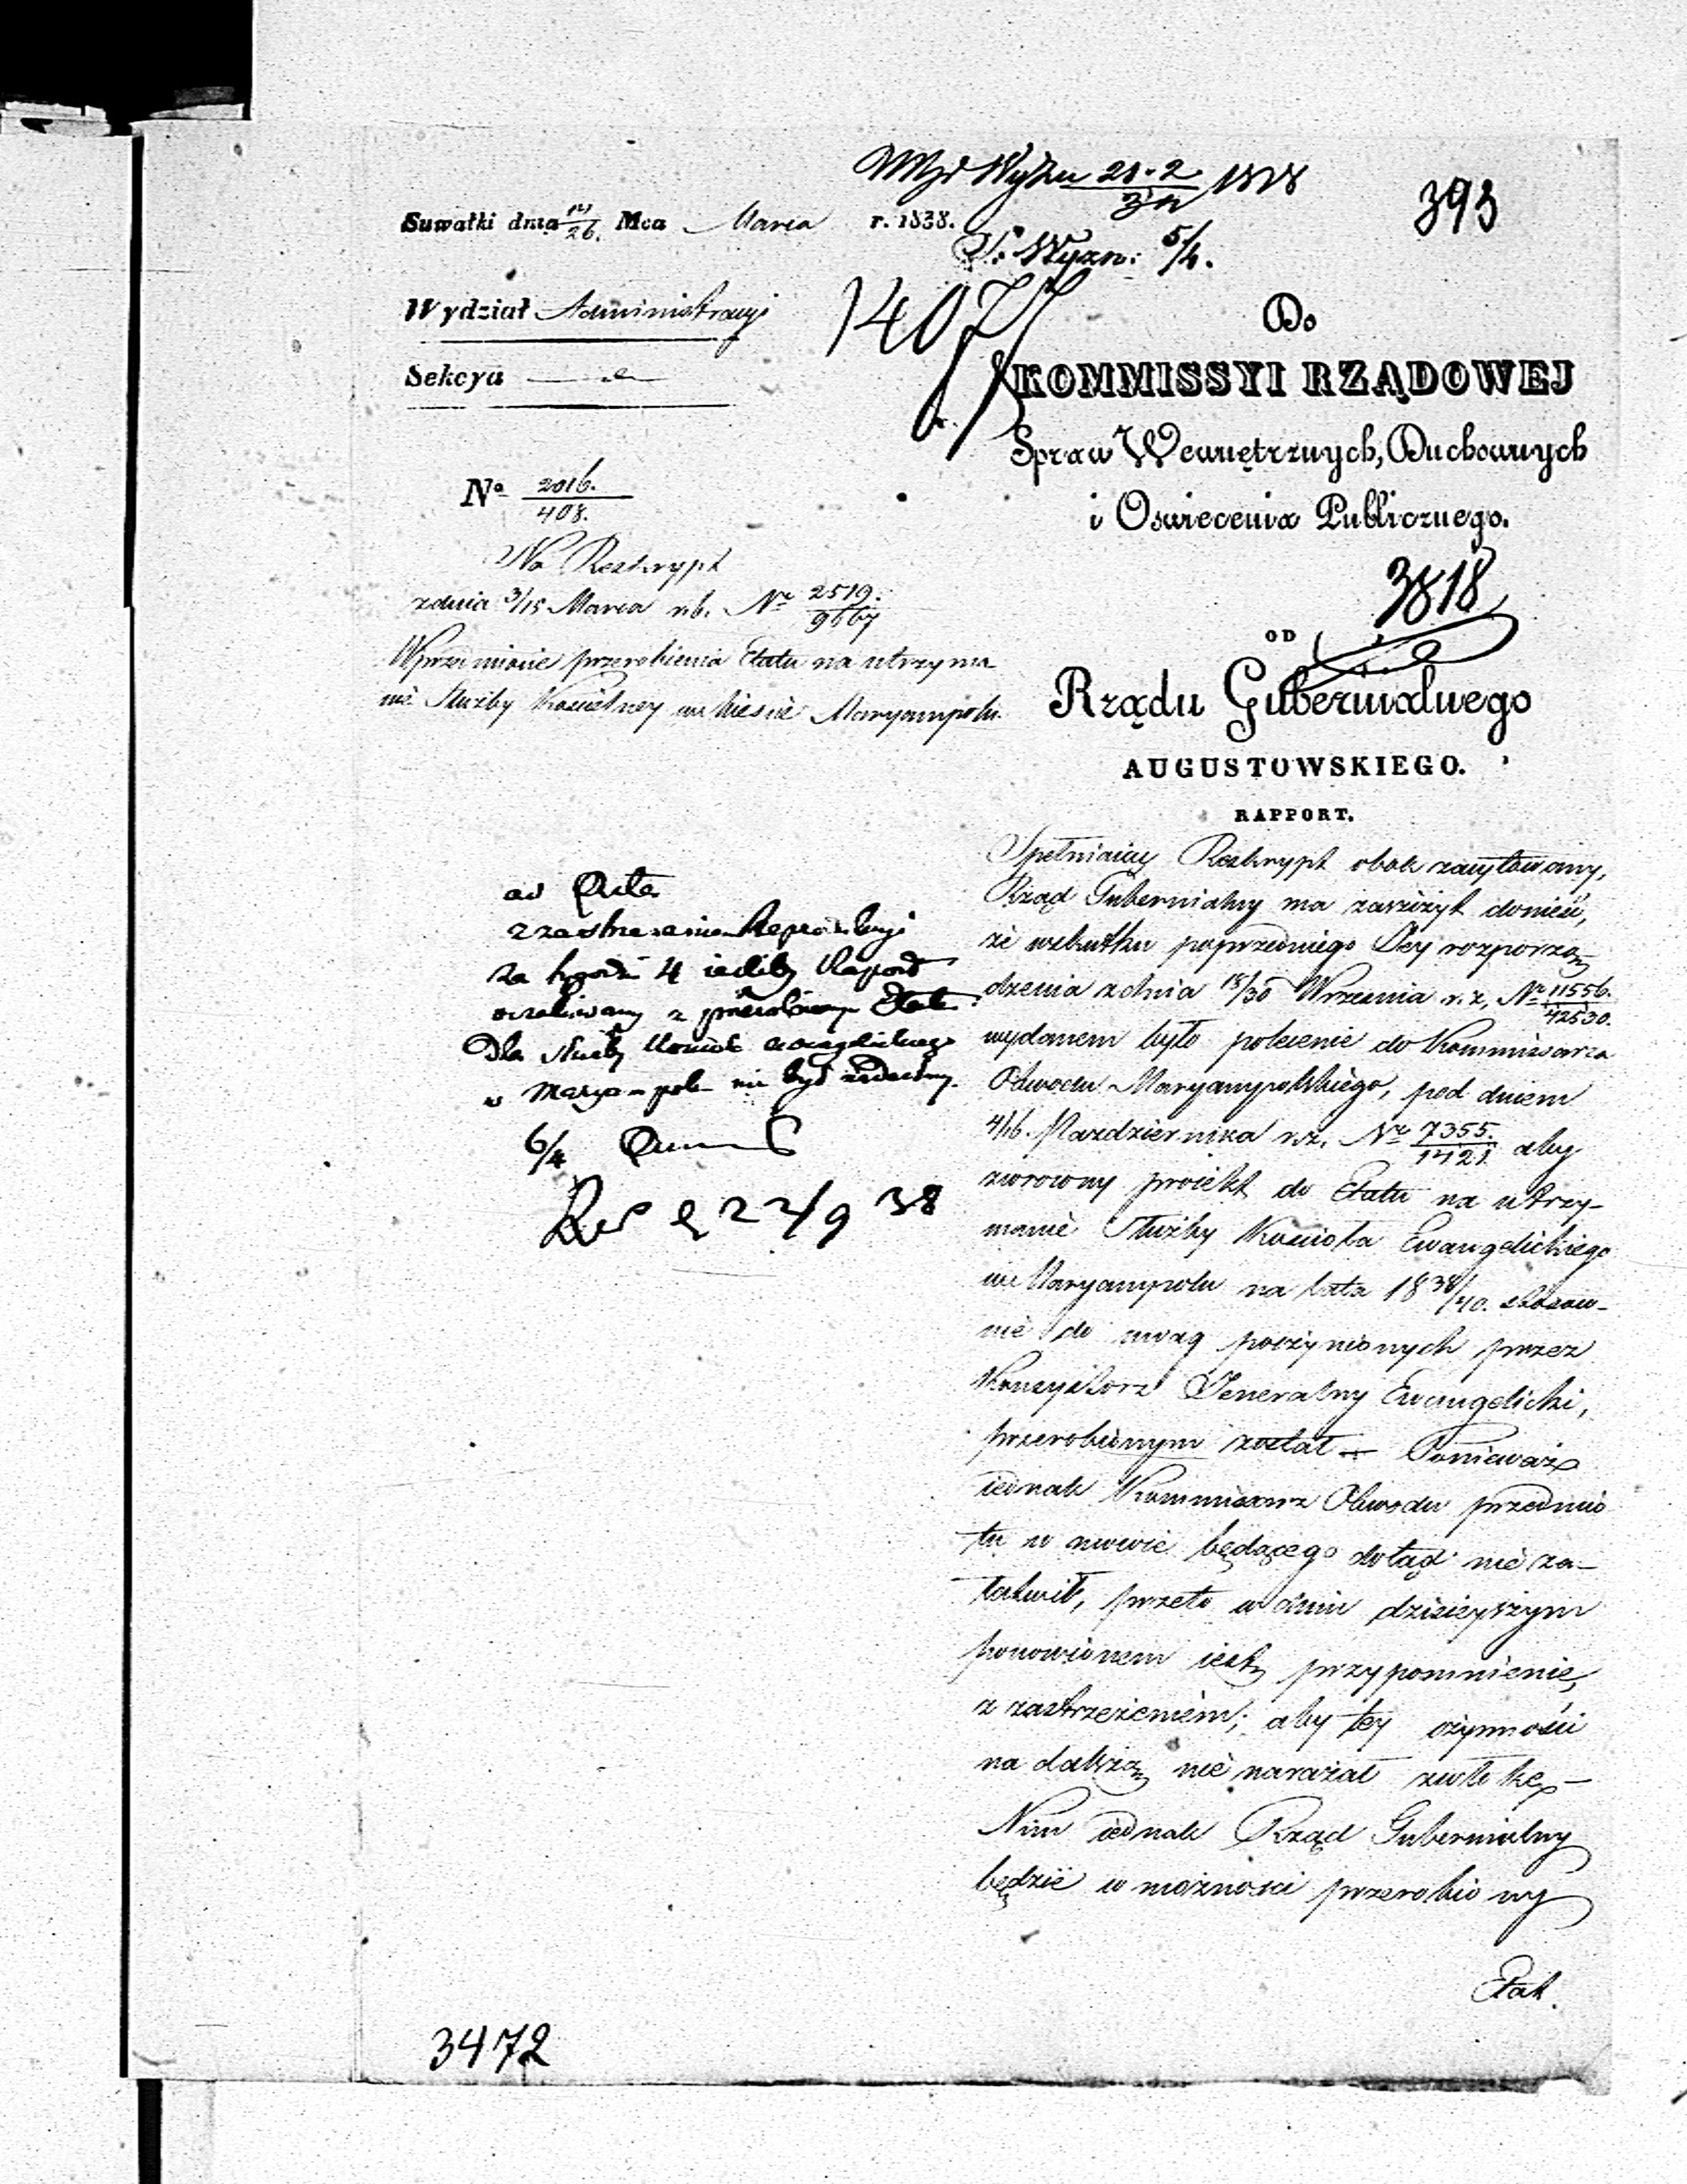 393
Suwałki dnia 14/26. Mca Marca r. 1838.
S. Wyzn: 5/4.
Wydział Administracyi
14077
Sekcya
Do
KOMMISSYI RZĄDOWEJ
Spraw Wewnętrznych, Duchownych
i Oswiecenia Publicznego.
No 2016./408.
Na Reskrypt
z dnia 3/15 Marca r.b. Nr 2519./9667
W przedmiocie przerobienia Etatu na utrzyma
nie Służby Kościelney w mieście Maryampolu.
3818
OD
Rządu Gubernialnego
AUGUSTOWSKIEGO.
RAPPORT.
Spełniaiąc Reskrypt obok zacytowany,
Rząd Gubernialny ma zaszczyt donieść,
że w skutku poprzedniego Jey rozporzą
dzenia z dnia 18/30 Września r.z. Nr 11556./42530.
wydanem było polecenie do Kommissarza
Obwodu Maryampolskiego, pod dniem
4/16. Pazdziernika r.z. Nr 7355./1421. aby
zwrócony proiekt do Etatu na utrzy-
manie Służby Kościoła Ewangelickiego
w Maryampolu na lata 1838/40. stosow-
nie do uwag poczynionych przez
Konsystorz Jeneralny Ewangelicki,
przerobionym został — Ponieważ
iednak Kommissarz Obwodu przedmio
tu w mowie będącego dotąd nie za-
łatwił, przeto w dniu dzisieyszym
ponowionem iest przypomnienie,
z zastrzeżeniem; aby tey czynności
na dalszą nie narażał zwłokę —
Nim iednak Rząd Gubernialny
będzie w możności przerobiony
Etat.
ad Acta
z zastrzeżeniem Reprodukcyi
za tygodni 4 ieśliby Rapport
oczekiwany z przerobionym Etatem
Dla służby Kościoła Ewangelickiego
w Maryampolu nie był nadesłany.
6/4
22/9 38
3472